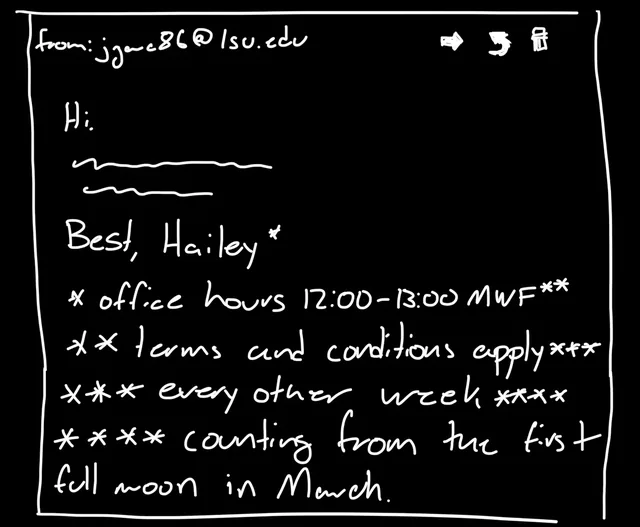 from: jgmc86@lsu.edu
Hi.
Best, Hailey*
* office hours 12:00-13:00 MWF**
** terms and conditions apply***
*** every other week ****
**** counting from the first
full moon in March.